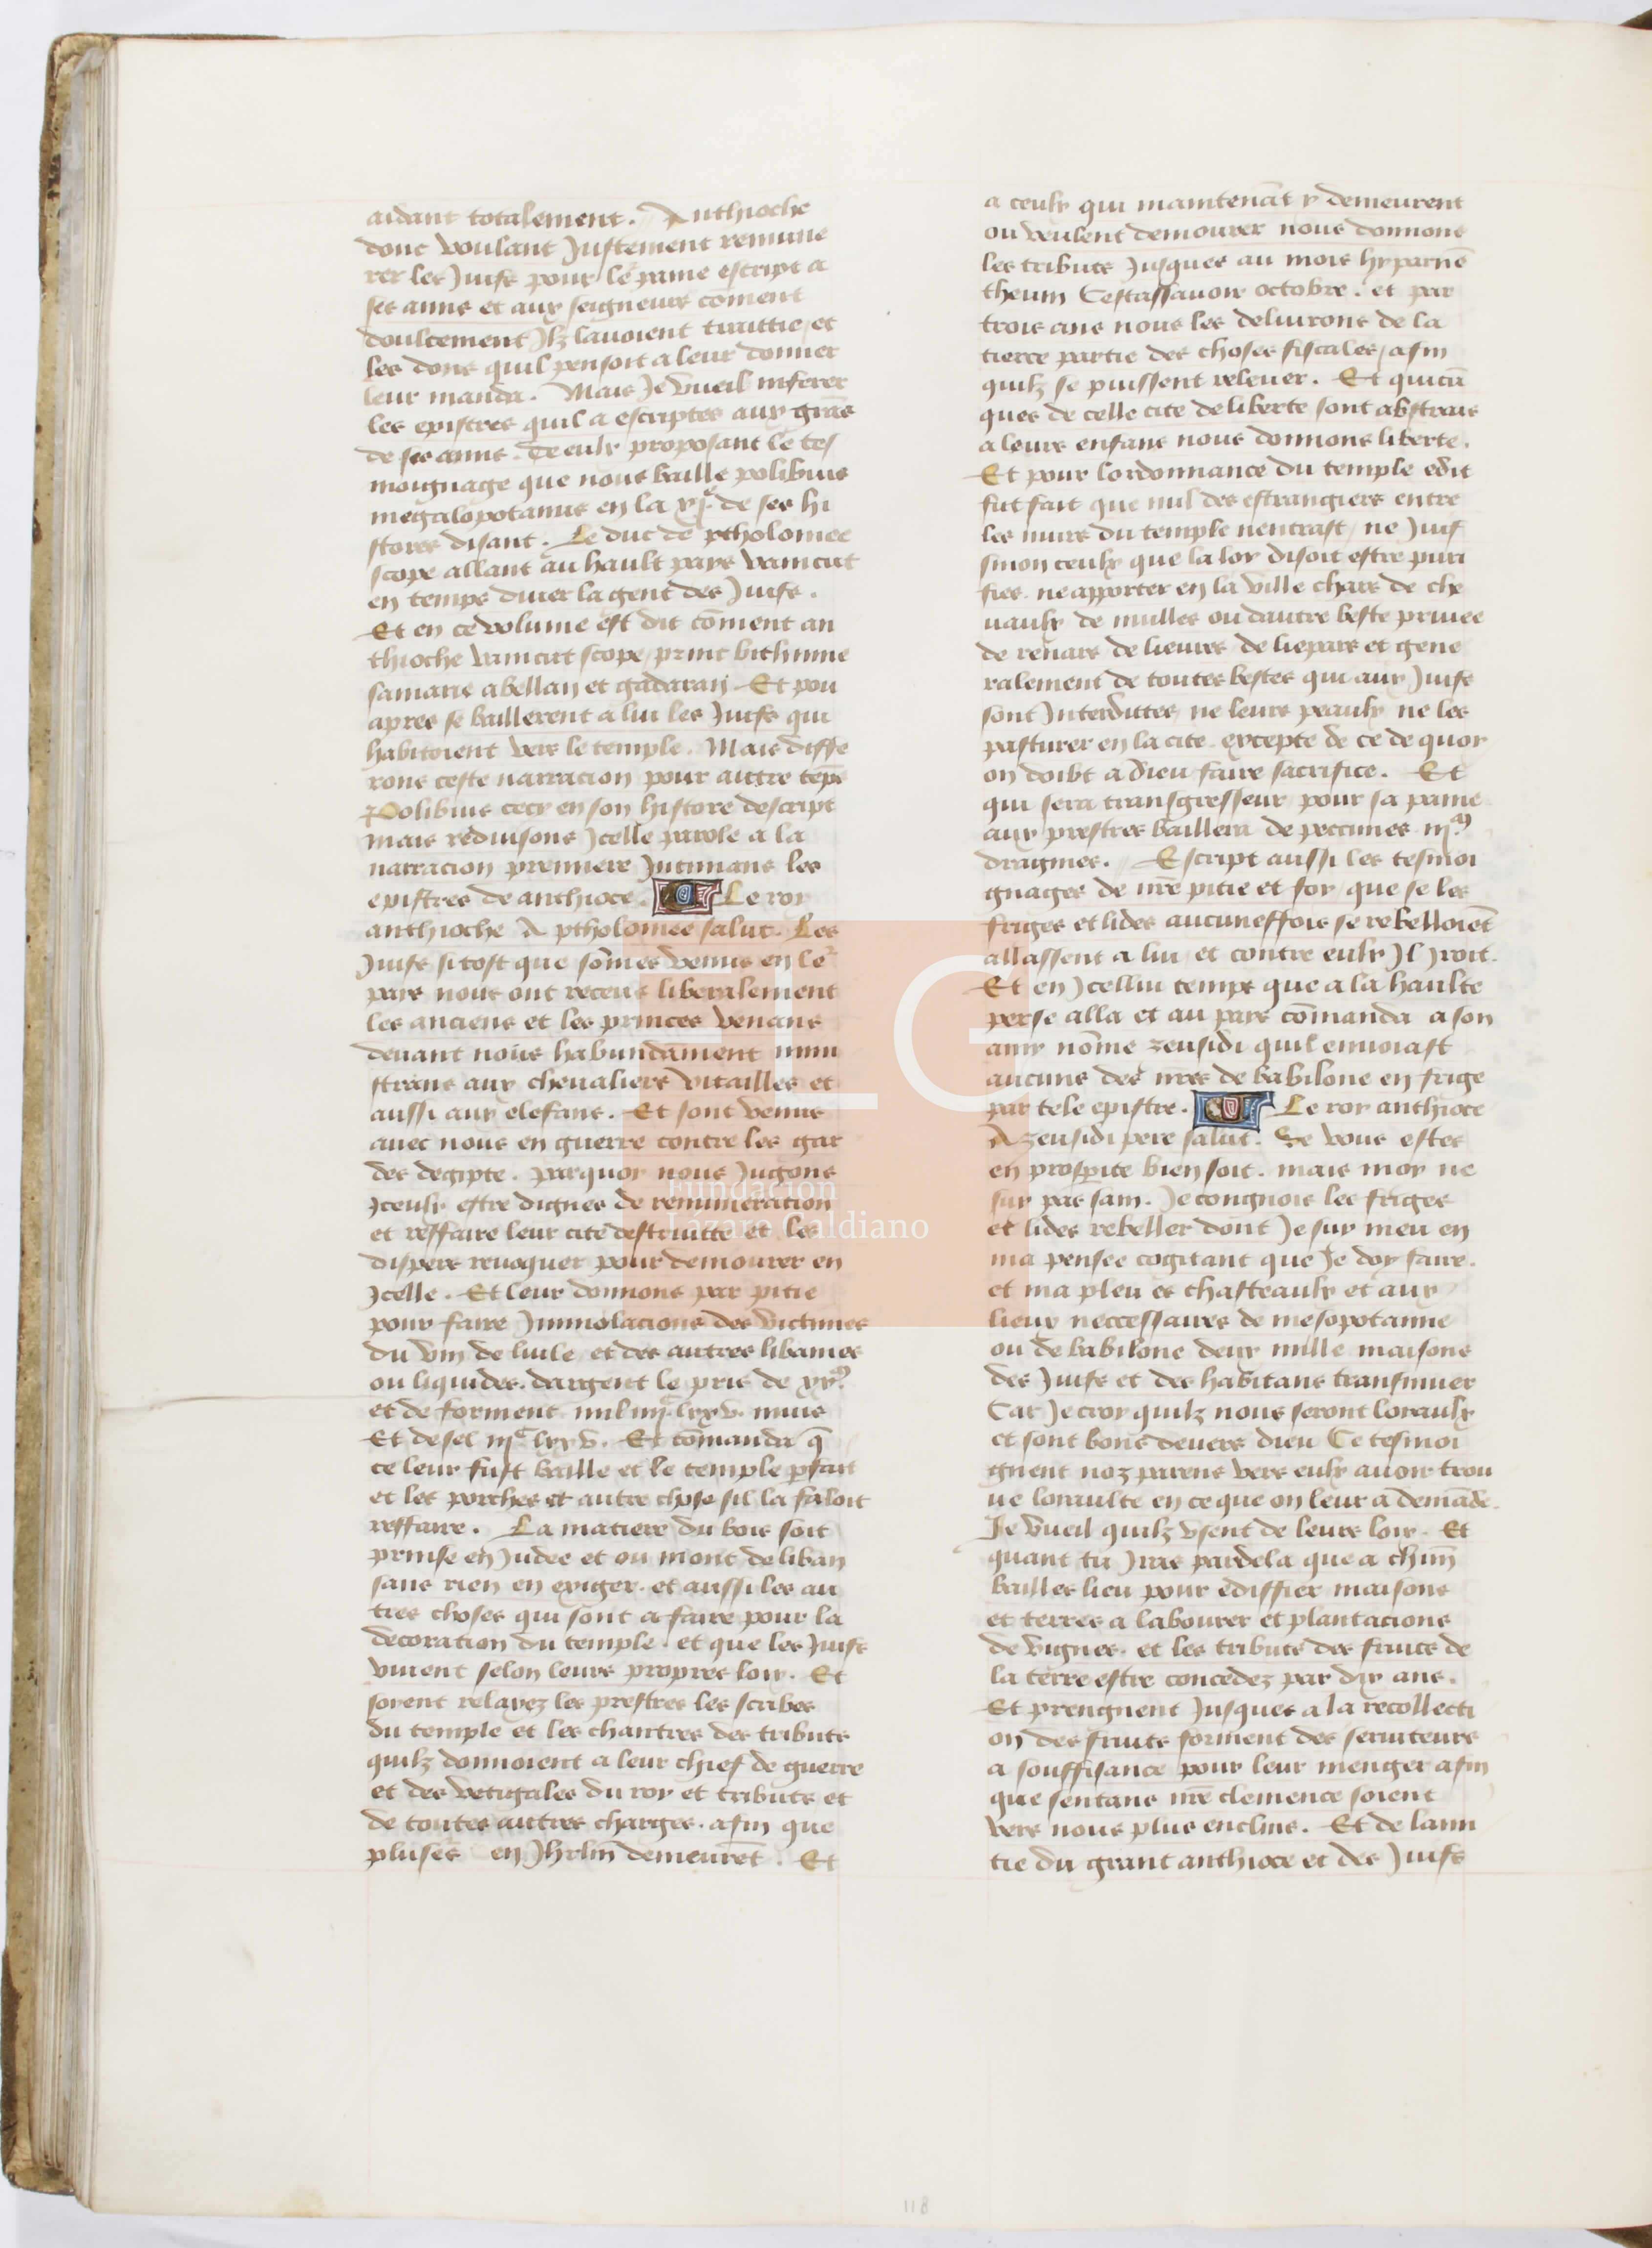 aidant totalement. Anthioche
donc voulant Justement remune
rer les Juifs pour le paine escript a
ses amis et aux seigneurs coment
doulcement Jlz lauoient traittie et
les dons quil pensoit a leur donner
leur manda. Mais Je vueil inserer
les epistres quil a escriptes aux grās
de ses amis. De eulx proposant le tes
moignage que nous baille polibius
megalopotanus en la xjͤ de ses hi
stores disant. Le duc de ptholomee
scope allant au hault pays vainciit
en temps diuer la gent des Juifs.
Et en ce volume est dit cōment an
thioche vainciit scope, print bithinne
samarie abellan et gadaran Et pou
apres se baillerent a lui les Juifs qui
habitoient vers le temple. Mais diffe
rons ceste narracion pour autre tēps
Polibius cecy en son histore descript
mais reduisons Jcelle parole a la
narracion premiere Jntimans les
epistres de anthioce. Le roy
anthioche A ptholomee salut. Les
Juifs si tost que sōmes venus en leͬ
pays nous ont receus liberalement
les anciens et les princes venans
deuant nous habundāment mini
strans aux cheualiers vitailles et
aussi aux elefans. Et sont venus
auec nous en guerre contre les gar
des degipte. parquoy nous Jugons
Jceulx estre dignes de remuneracion
et reffaire leur cite destruitte et les
dispers reuoquer pour demourer en
Jcelle. Et leur donnons par pitie
pour faire Jmmolacions des victimes
du vin de luile et des autres libames
ou liquides. dargent le pris de xxͫ.
et de forment mil iiijͨ lxx v. muis
Et de sel iijͨ lxx v. Et cōmanda q̄
ce leur fust baille et le temple pfait
et les porches et autre chose sil la faloit
reffaire. La matiere du bois soit
prinse en Judee et ou mont de liban
sans rien en exiger. et aussi les au
tres choses qui sont a faire pour la
decoration du temple. et que les Juifs
viuent selon leurs propres loix. Et
soyent relaxez les prestres les scribes
du temple et les chantres des tributs
quilz donnoient a leur chief de guerre
et des vetigales du roy et tributs et
de toutes autres charges. afin que
pluseͬs en Jhrlm̄ demeurēt. Et
a ceulx qui maintenāt y demeurent
ou veulent demourer nous donnons
les tributs Jusques au mois hyparnē
theum Cestassauoir octobre. et par
trois ans nous les deliurons de la
tierce partie des choses fiscales, afin
quilz se puissent releuer. Et quicū
ques de celle cite de liberte sont abstrais
a leurs enfans nous donnons liberte.
Et pour lordonnance du temple edit
fut fait que nul des estrangiers entre
les murs du temple nentrast, ne Juif
sinon ceulx que la loy disoit estre puri
fies. ne apporter en la ville chars de che
uaulx de mulles ou dautre beste priuee
de renars de lieures de liepars et gene
ralement de toutes bestes qui aux Juifs
sont Jnterdittes, ne leurs peaulx ne les
pasturer en la cite. excepte de ce de quoy
on doibt a Dieu faire sacrifice. Et
qui sera transgresseur pour sa paine
aux prestres baillera de peccunes iijͫ
dragmes. Escript aussi les tesmoi
gnages de nr̄e pitie et foy, que se les
friges et lides aucuneffois se rebelloiēt
allassent a lui et contre eulx Jl Jroit.
Et en Jcellui temps que a la haulte
perse alla et au pays cōmanda a son
amy nōme zeusidi quil enuoiast
aucuns des nr̄es de babilone en frige
par tele epistre. Le roy anthioce
A zeusidi pere salut. Se vous estes
en prosperite bien soit. mais moy ne
suy pas sain. Je congnois les friges
et lides rebeller dont Je suy meu en
ma pensee cogitant que Je doy faire.
et ma pleu es chasteaulx et aux
lieux neccessaires de mesopotamie
ou de babilone deux mille maisons
des Juifs et des habitans transmuer
Car Je croy quilz nous seront loyaulx
et sont bons deuers dieu Ce tesmoi
gnent noz parens vers eulx auoir trou
ue loyaulte en ce que on leur a demāde.
Je vueil quilz vsent de leurs loix. Et
quant tu Jras pardela que a chūn
bailles lieu pour ediffier maisons
et terres a labourer et plantacions
de vignes. et les tributs des fruits de
la terre estre concedez par dix ans.
Et prengnent Jusques a la recollecti
on des fruits forment des seruiteurs
a souffisance pour leur menger afin
que sentans nr̄e clemence soient
vers nous plus enclins. Et de lami
tie du grant anthioce et des Juifs
FLG
Fundación
Lázaro Galdiano
118